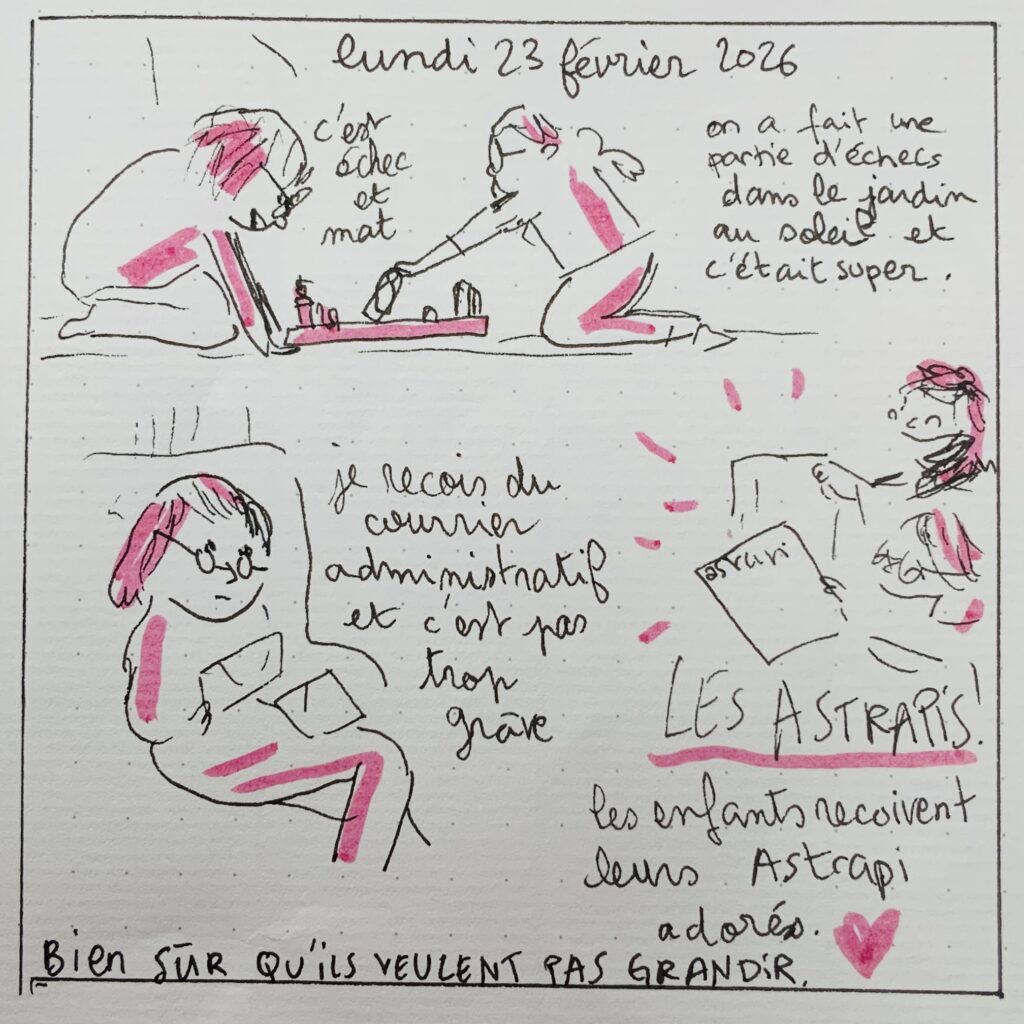 lundi 23 février 2026
c'est
échec
et
mat
on a fait une
partie d'échecs
dans le jardin
au soleil et
c'était super.
je recois du
courrier
administratif
et c'est pas
trop
grave
astrapi
LES ASTRAPIS!
les enfants recoivent
leurs Astrapi
adorés.
Bien SÛR QU'ILS VEULENT PAS GRANDIR.